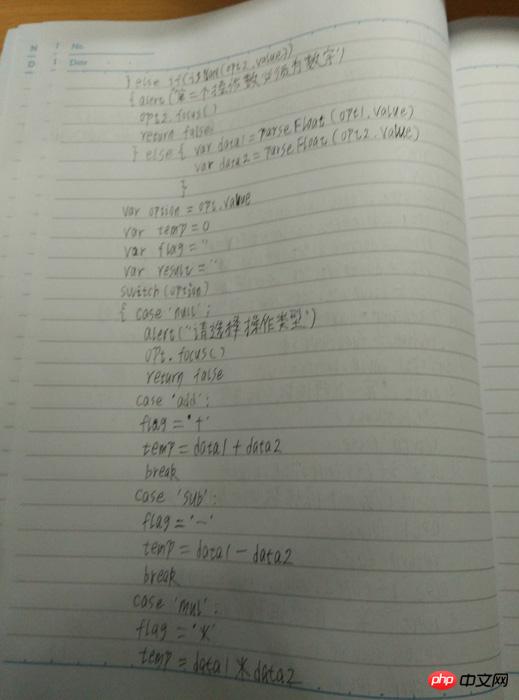 N T No.
D I Date
} else if(isNaN(opt2.value))
{ alert('第二个操作数必须为数字')
opt2.focus()
return false
} else { var data1 = parseFloat(opt1.value)
var data2 = parseFloat(opt2.value)
}
var option = opt.value
var temp = 0
var flag = ''
var result = ''
switch(option)
{ case 'null':
alert('请选择操作类型')
opt.focus()
return false
case 'add':
flag = '+'
temp = data1 + data2
break
case 'sub':
flag = '-'
temp = data1 - data2
break
case 'mul':
flag = '*'
temp = data1 * data2
php 中文网